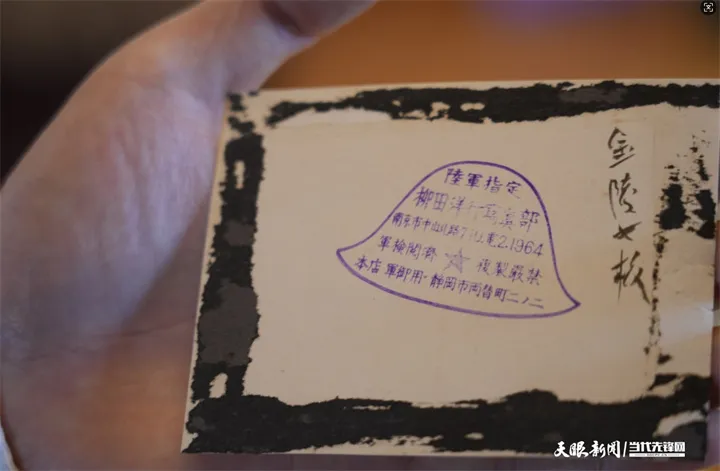 陸軍指定
柳田洋行写真部
南京市中山北路 電2.1964
軍檢閲済 ☆ 複製嚴禁
本店 軍御用・静岡市両替町二ノ二
金陵女板
天眼新闻 当代先锋网